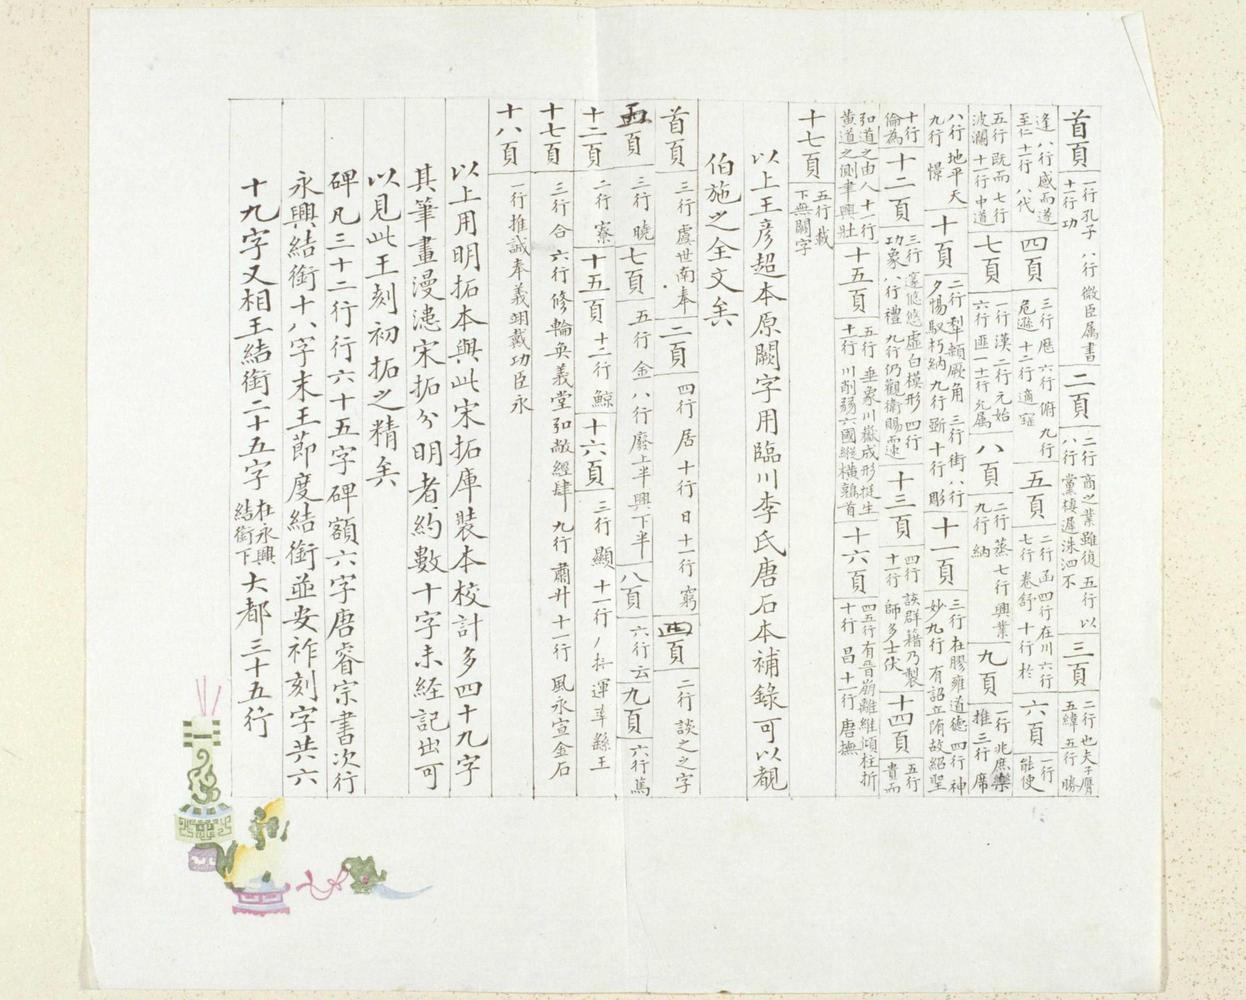 首頁 一行孔子 八行微臣属書 十一行功 二頁 二行商之業雖復 五行以 八行黨棲遲洙泗不 三頁 二行也夫子膺 五緯五行勝
逢 八行感而遂 至仁十一行 八代 四頁 三行厖 六行俯 九行 危遜 十二行適 五頁 二行函 四行在川 六行 七行卷舒 十行於 六頁 一行能使
五行既而 七行 波瀾 十一行中道 七頁 一行漢 二行元始 六行匪 十一行允属 八頁 二行蒸 七行興業 九行納 九頁 一行兆庶樂 推三行席
八行地平天 九行憬 十頁 二行犁顙厥角 三行街 八行 夕惕馭朽納 九行斲 十行彫 十一頁 三行在膠雍道德 四行神 妙九行有詔立隋故紹聖
十行 倫為 十二頁 三行邃悠悠虛白模形 四行 功象 八行禮 九行仍觀衛賜還 十三頁 四行該群籍乃製 十一行師多士伏 十四頁 五行貴而
弘道之由人 十一行 黃道之側聿興壯 十五頁 五行垂象川嶽成形挺生 十一行川削弱六國縱橫鶉首 十六頁 四五行有晉崩離維傾柱折 十行昌 十一行唐撫
十七頁 五行載 下無闕字
以上王彥超本原闕字用臨川李氏唐石本補錄可以覩
伯施之全文矣
首頁 三行虞世南奉 二頁 四行居 十行日 十一行窮 四頁 二行談之之字
五頁 三行曉 七頁 五行金 八行廢上半興下半 八頁 六行云 九頁 六行篤
十二頁 二行寮 十五頁 十二行鯨 十六頁 三行顯 十一行 運率繇王
十七頁 三行合 六行修輪奐義堂弘敞經肆 九行肅升 十一行風永宣金石
十八頁 一行推誠奉義翊戴功臣永
以上用明拓本與此宋拓庫裝本校計多四十九字
其筆畫漫漶宋拓分明者約數十字未経記出可
以見此王刻初拓之精矣
碑凡三十二行行六十五字碑額六字唐睿宗書次行
永興結銜十八字末王節度結銜並安祚刻字共六
十九字又相王結銜二十五字 在永興結銜下 大都三十五行